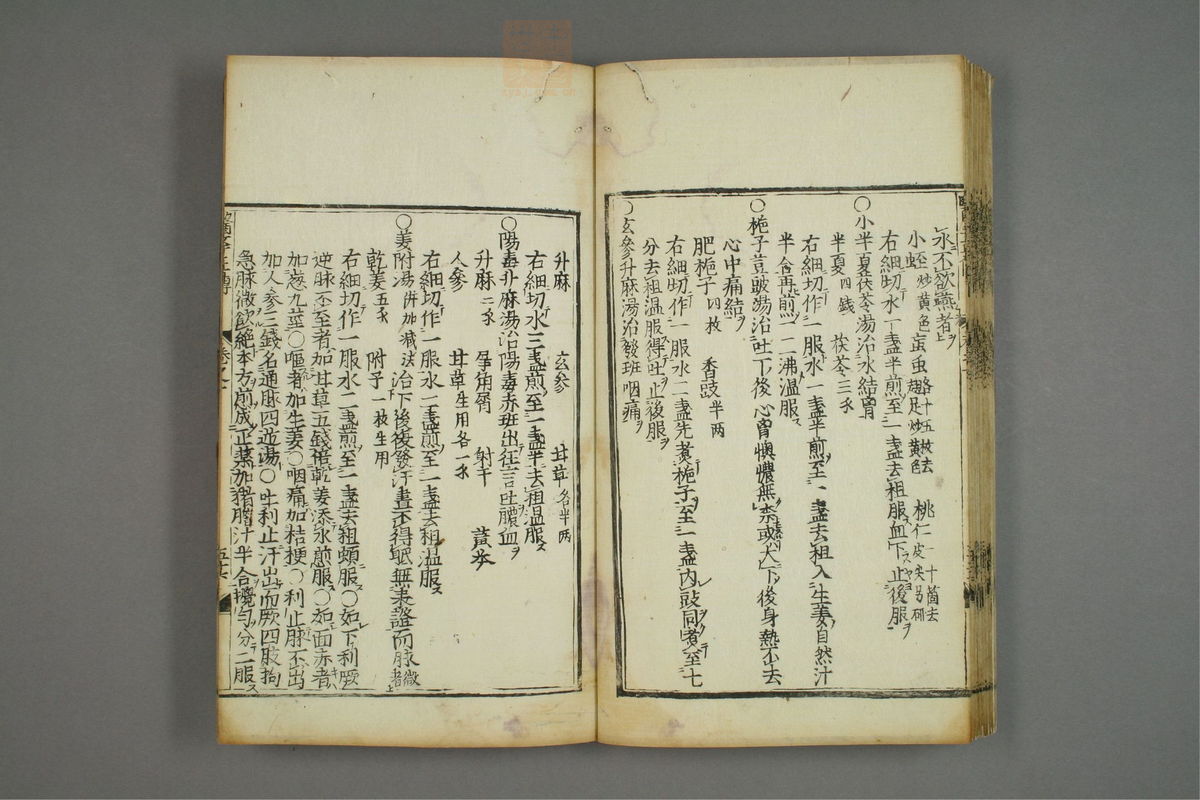 水不欲嚥者
小蛭炒黄色 䖟虫略十五枚去翅足炒黄色 桃仁一十箇去皮尖另研
右細切水一盞半煎至一盞去柤服血下止後服
○小半夏茯苓湯治水結胷
半夏四錢 茯苓三錢
右細切作一服水一盞半煎至一盞去柤入生姜自然汁
半合再煎一二沸温服
○梔子荳豉湯治吐下後心胷懊憹無奈或大下後身熱不去
心中痛結
肥梔子四枚 香豉半两
右細切作一服水二盞先煮梔子至一盞内豉同煮至七
分去柤温服得吐止後服
○玄參升麻湯治發班咽痛
升麻 玄參 甘草各半两
右細切水三盞煎至一盞半去柤温服
○陽毒升麻湯治陽毒赤班出狂言吐膿血
升麻二錢 犀角屑 射干 黄芩
人參 甘草生用各一錢
右細切作一服水一盞煎至一盞去柤温服
○姜附湯併加減法治下後復發汗晝不得眠無表證而脉微者
乾姜五錢 附子一枚生用
右細切作一服水二盞煎至一盞去柤頓服○如下利厥
逆脉不至者加甘草五錢倍乾姜添水煎服○如面赤者
加葱九莖○嘔者加生姜○咽痛加桔梗○利止脉不出
加人參三錢名通脉四逆湯○吐利止汗出而厥四肢拘
急脉微欲絶本方煎成正藥加猪膽汁半合攪匀分二服